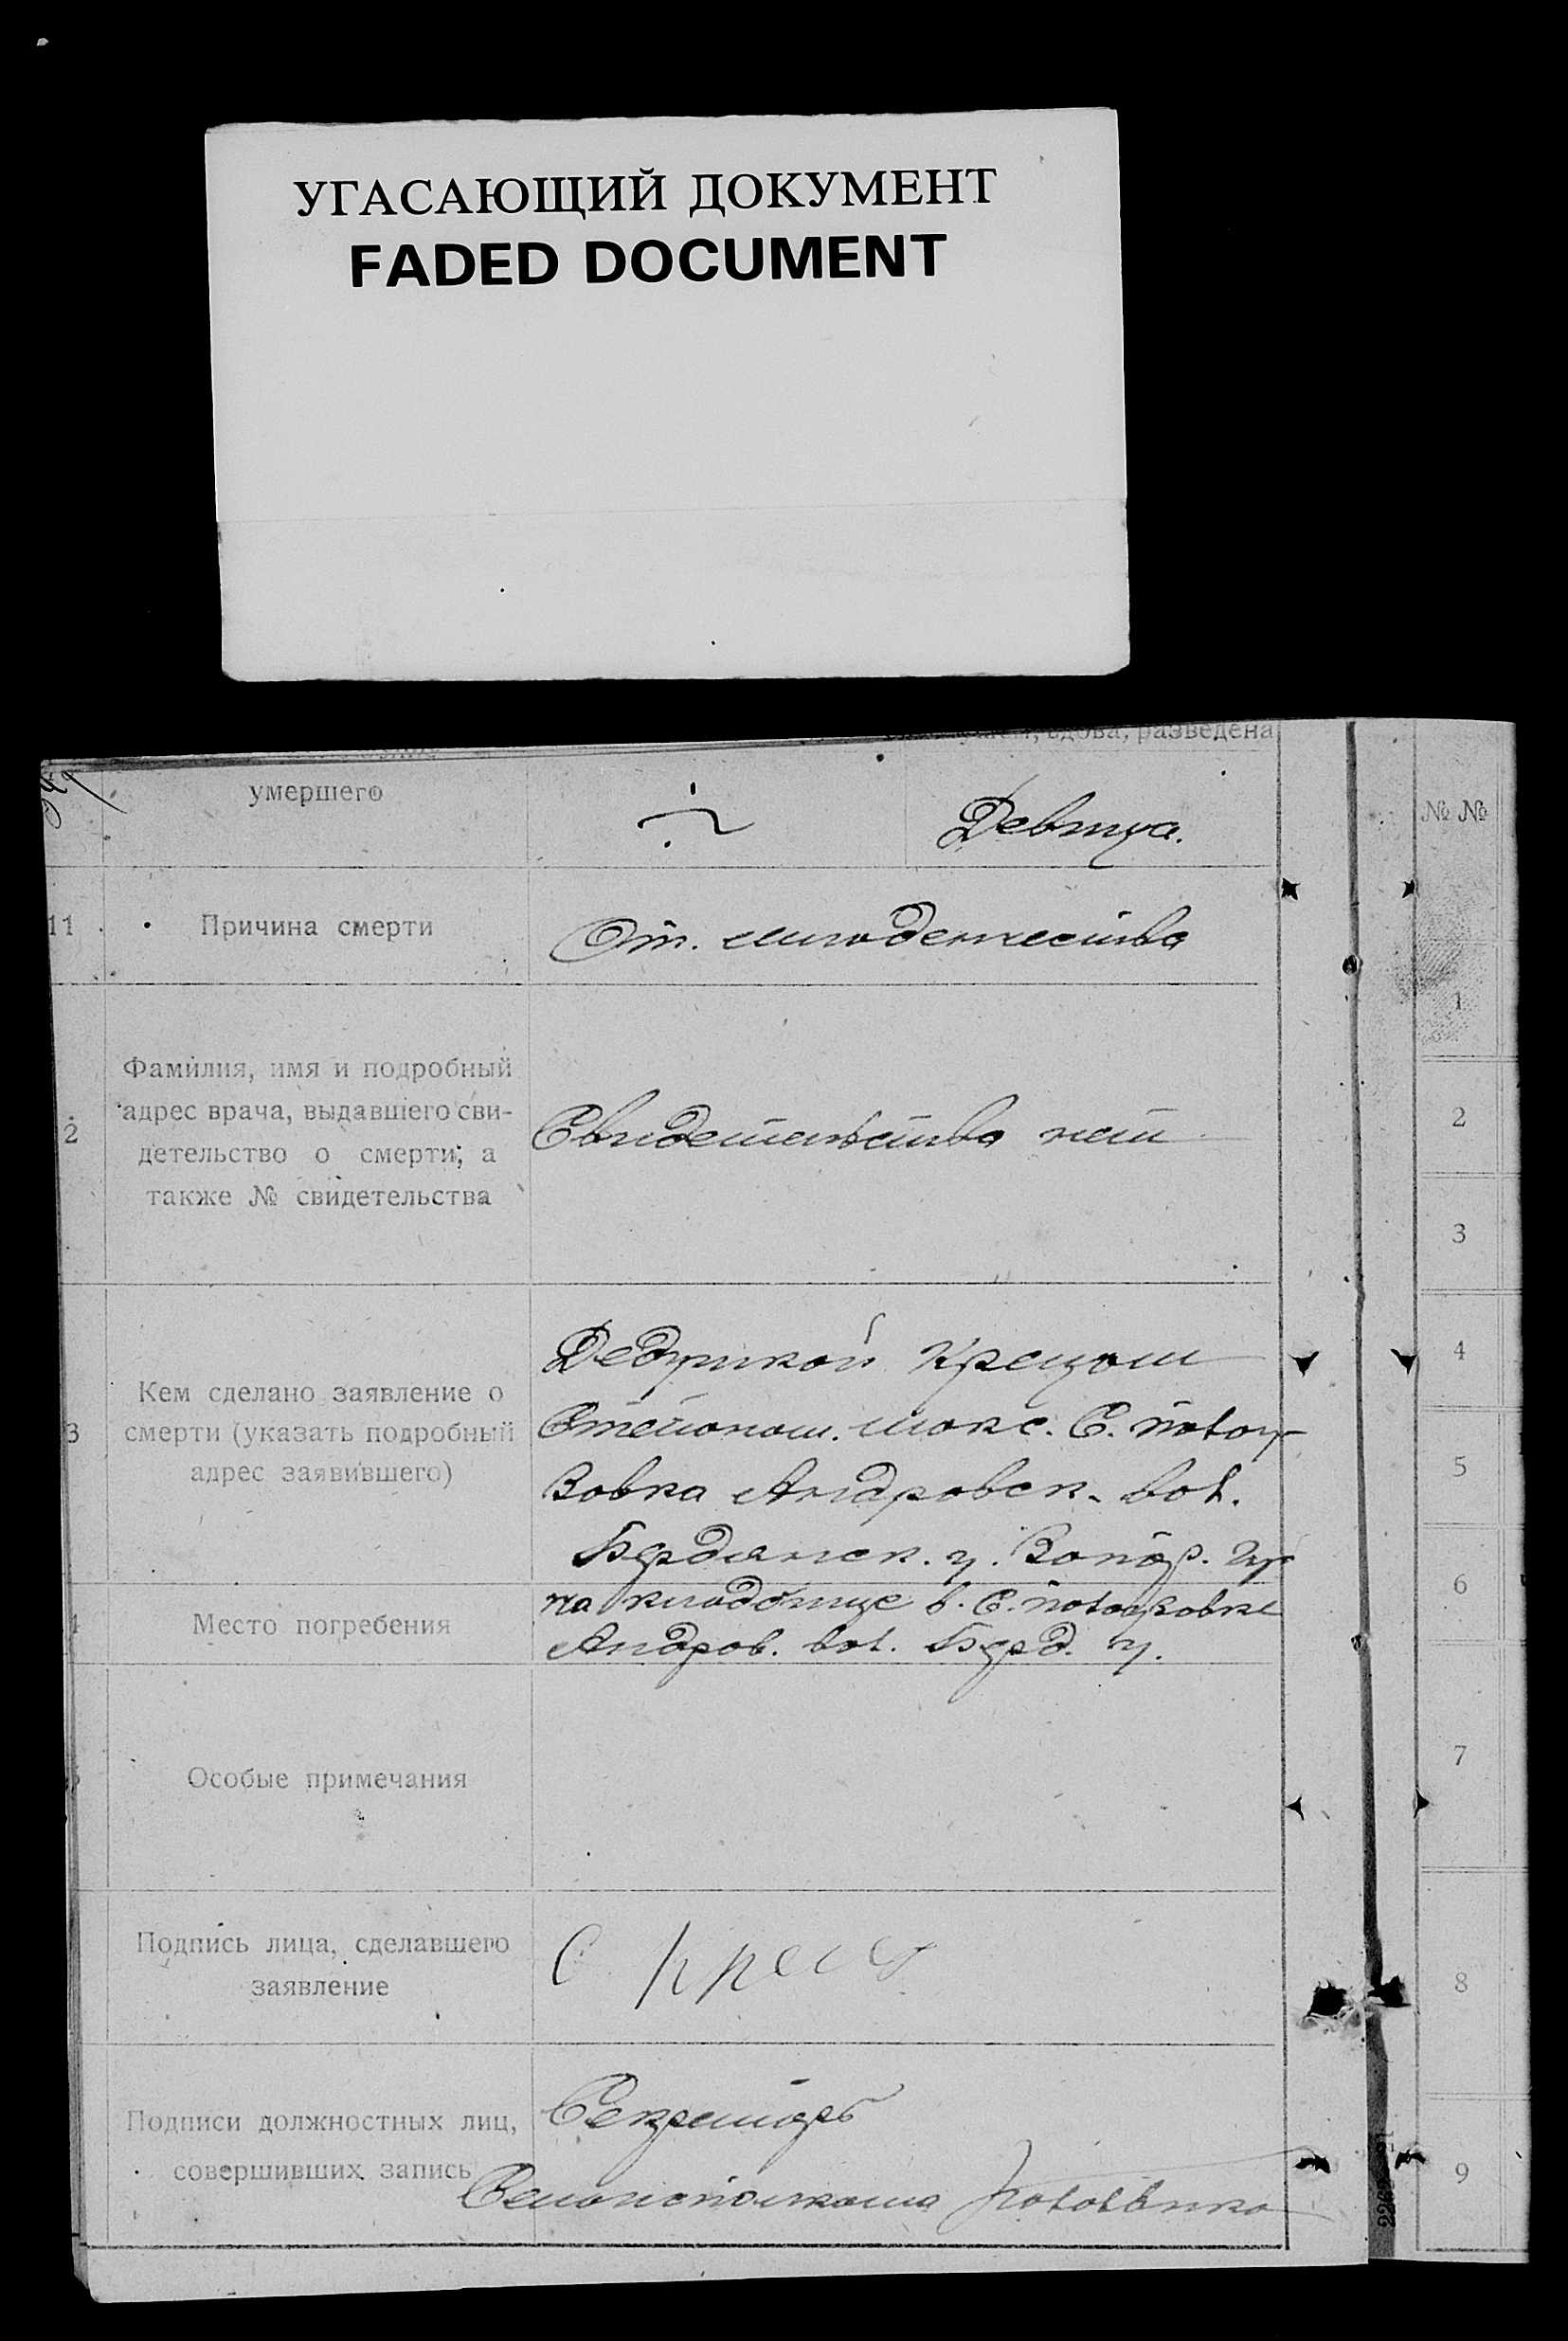 УГАСАЮЩИЙ ДОКУМЕНТ
FADED DOCUMENT
вдова, разведена
умершего
Девица.
№ №
11
Причина смерти
От. младенчества
1
2
Фамилия, имя и подробный
адрес врача, выдавшего сви-
детельство о смерти, а
также № свидетельства
Свидетельства нет
2
3
3
Кем сделано заявление о
смерти (указать подробный
адрес заявившего)
Дедушкой
Зовка Андровск. вол.
Бердянск. у. Запор. гу
4
5
6
Место погребения
на кладбище в. С.
Андров. вол. Берд. у.
Особые примечания
7
Подпись лица, сделавшего
заявление
С
8
Подписи должностных лиц,
совершивших запись
Секретарь
9